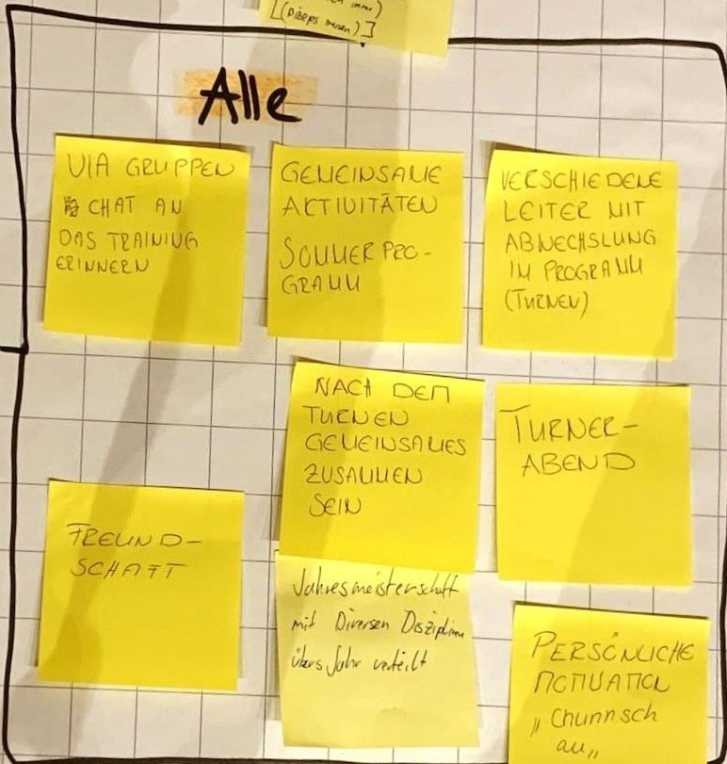 [(Pizeps messen)]
Alle
VIA GRUPPEN
CHAT AN
DAS TRAINING
ERINNERN
GEMEINSAME
AKTIVITÄTEN
SOMMERPRO-
GRAMM
VERSCHIEDENE
LEITER MIT
ABWECHSLUNG
IM PROGRAMM
(TURNEN)
NACH DEM
TURNEN
GEMEINSAMES
ZUSAMMEN
SEIN
TURNER-
ABEND
FREUND-
SCHAFT
Jahresmeisterschaft
mit Diversen Disziplinen
übers Jahr verteilt
PERSÖNLICHE
MOTIVATION
„Chunnsch
au„